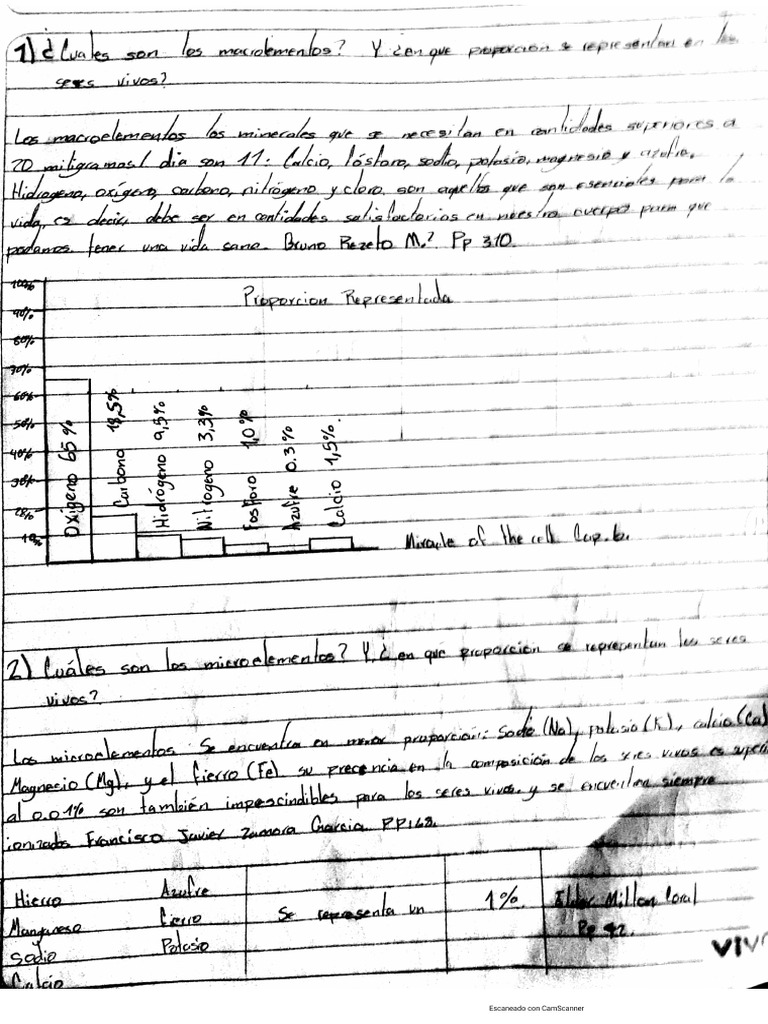 1) ¿Cuales son los macroelementos? Y ¿en que proporción se representan en los
seres vivos?
Los macroelementos los minerales que se necesitan en cantidades superiores a
20 miligramos/ dia son 11: Calcio, fósforo, sodio, potasio, magnesio y azufre,
Hidrogeno, oxígeno, carbono, nitrógeno y cloro. son aquellos que son esenciales para la
vida, es decir, debe ser en cantidades satisfactorias en nuestro cuerpo para que
podamos tener una vida sana. Bruno Rezeto M.? Pp 310.
Proporcion Representada
100%
90%
80%
70%
60%
50%
40%
30%
20%
10%
Oxigeno 65%
Carbono 18,5%
Hidrógeno 9,5%
Nitrogeno 3,3%
Fosforo 1,0%
Azufre 0.3%
Calcio 1,5%.
Miracle of the cell Cap.
2) Cuáles son los microelementos? Y, ¿ en que proporción se representan los seres
vivos?
Los microelementos Se encuentra en menor proporción: Sodio (Na), potasio (K), calcio (Ca)
Magnecio (Mg), y el fierro (Fe) su precencia en la composición de los seres vivos es superi
al 0.01% son también impescindibles para los seres vivos. y se encuentran siempre
ionizados Francisco Javier Zamora Garcia PP168.
Hierro Azufre
Manganeso fierro
y
Sodio Potasio
Calcio
Se representa un
1%.
Millan Coral
Pp 42.
VIV
Escaneado con CamScanner